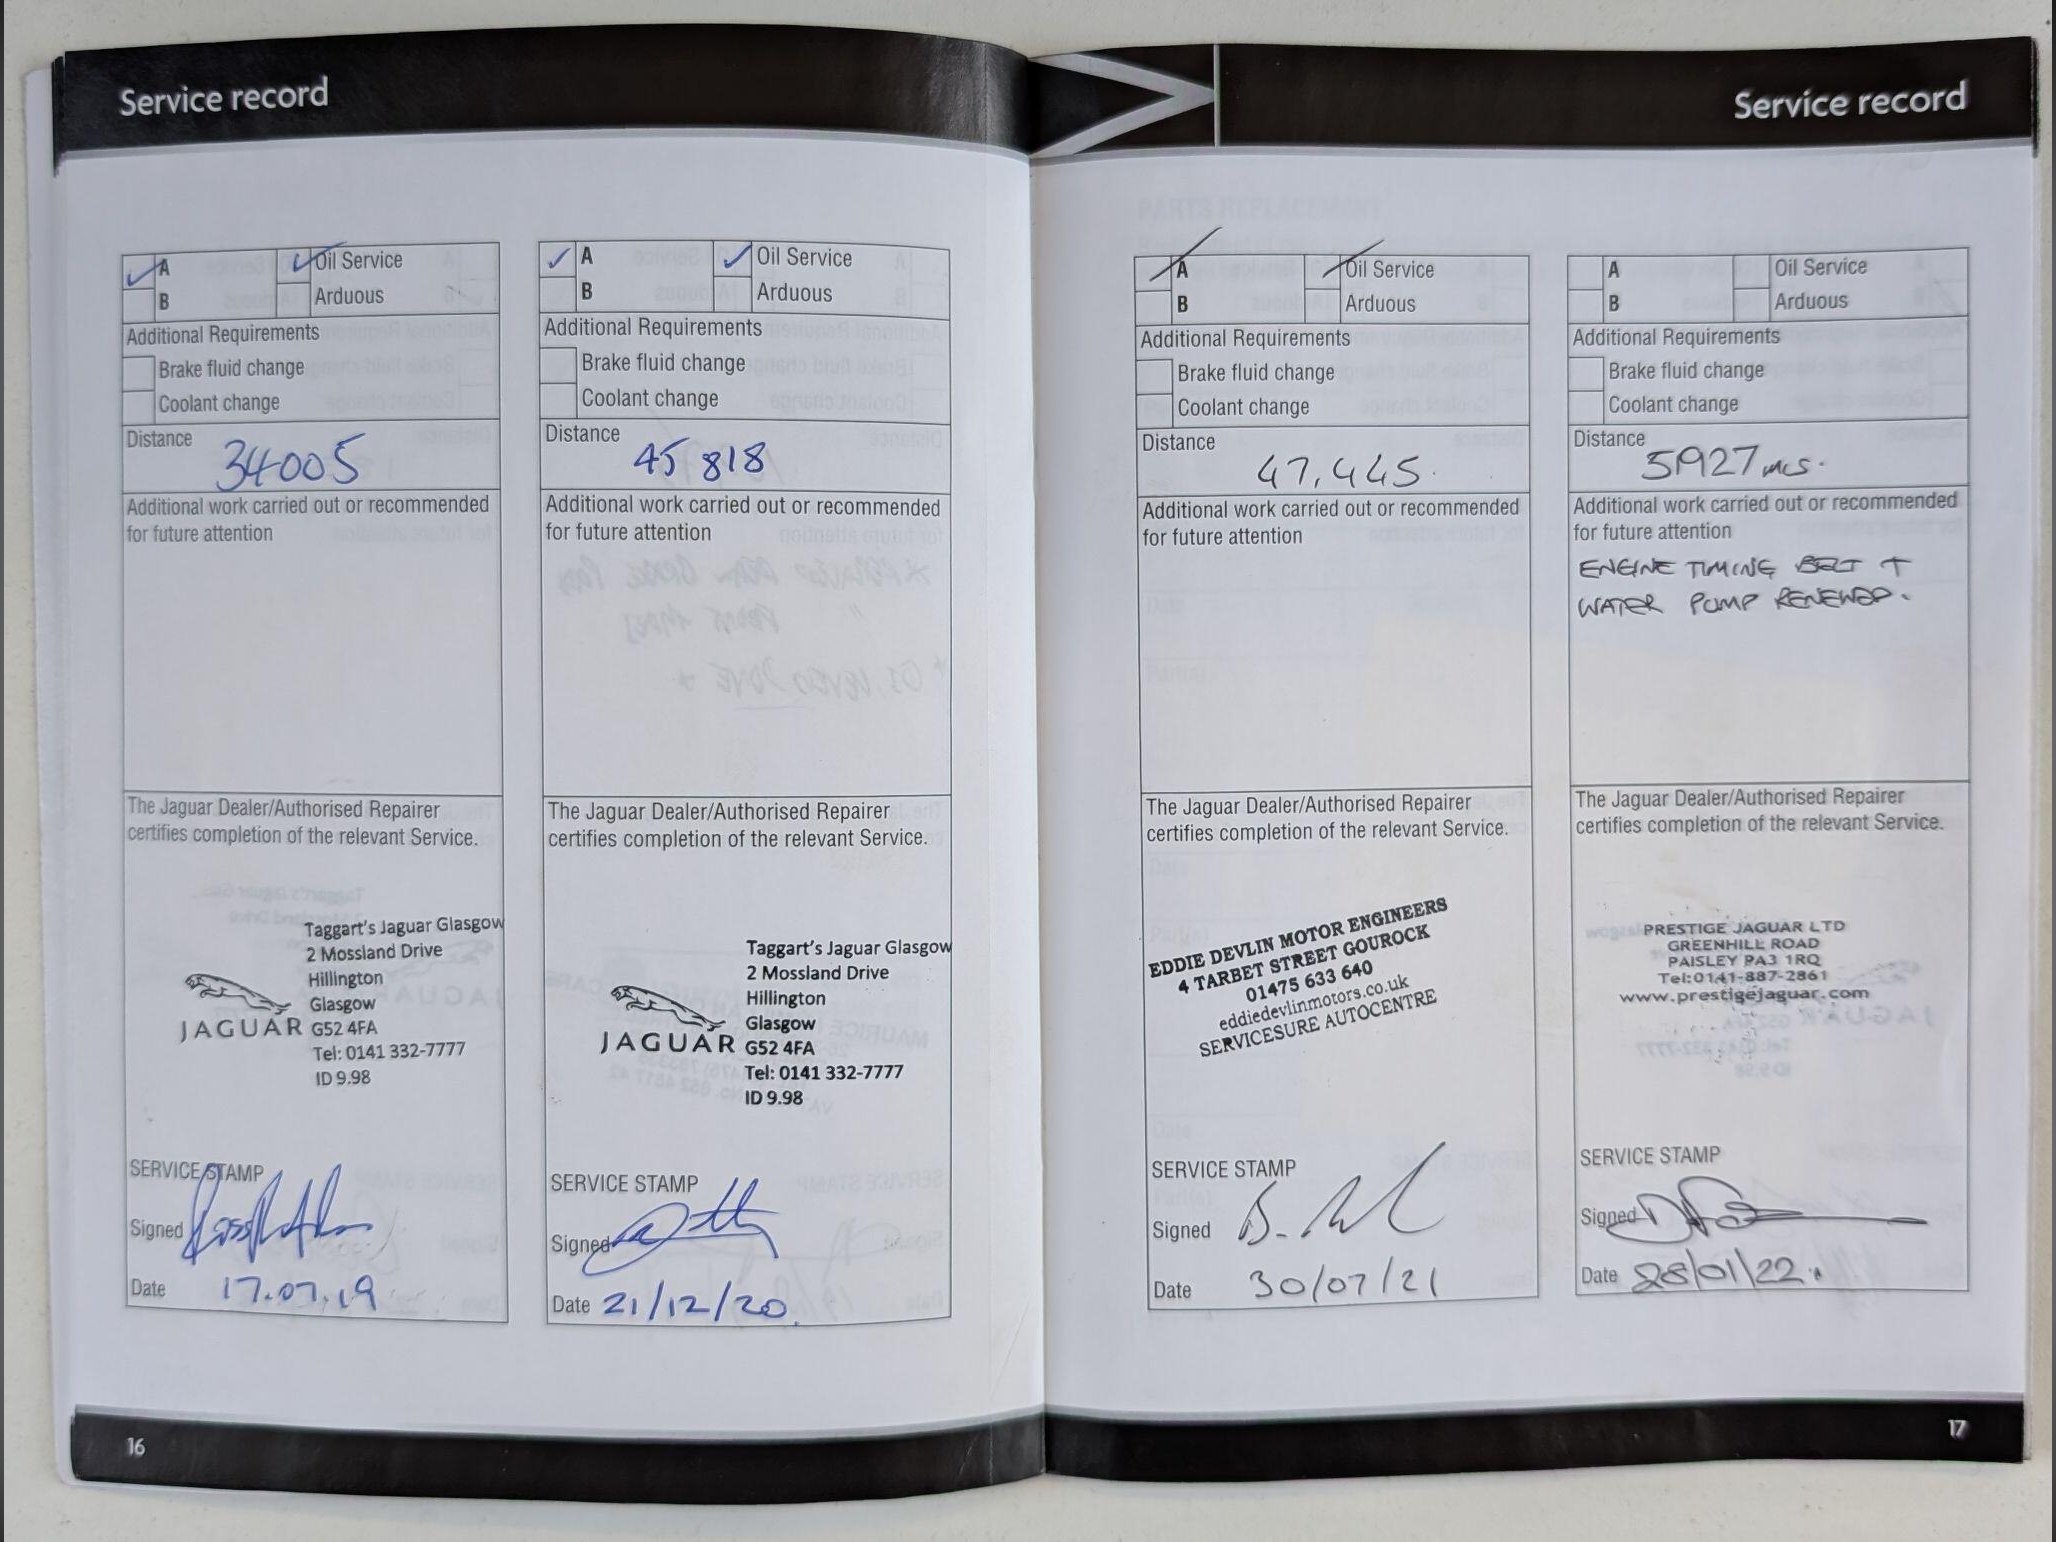 Service record
A Oil Service
B Arduous
Additional Requirements
Brake fluid change
Coolant change
Distance
34005
Additional work carried out or recommended
for future attention
The Jaguar Dealer/Authorised Repairer
certifies completion of the relevant Service.
Taggart's Jaguar Glasgow
2 Mossland Drive
Hillington
Glasgow
JAGUAR G52 4FA
Tel: 0141 332-7777
ID 9.98
SERVICE STAMP
Signed
Date 17.07.19
A Oil Service
B Arduous
Additional Requirements
Brake fluid change
Coolant change
Distance
45 818
Additional work carried out or recommended
for future attention
The Jaguar Dealer/Authorised Repairer
certifies completion of the relevant Service.
Taggart's Jaguar Glasgow
2 Mossland Drive
Hillington
Glasgow
JAGUAR G52 4FA
Tel: 0141 332-7777
ID 9.98
SERVICE STAMP
Signed
Date 21/12/20
16
Service record
A Oil Service
B Arduous
Additional Requirements
Brake fluid change
Coolant change
Distance
47,445.
Additional work carried out or recommended
for future attention
The Jaguar Dealer/Authorised Repairer
certifies completion of the relevant Service.
EDDIE DEVLIN MOTOR ENGINEERS
4 TARBET STREET GOUROCK
01475 633 640
eddiedevlinmotors.co.uk
SERVICESURE AUTOCENTRE
SERVICE STAMP
Signed
Date 30/07/21
A Oil Service
B Arduous
Additional Requirements
Brake fluid change
Coolant change
Distance
51927 mls.
Additional work carried out or recommended
for future attention
ENGINE TIMING BELT +
WATER PUMP RENEWED.
The Jaguar Dealer/Authorised Repairer
certifies completion of the relevant Service.
PRESTIGE JAGUAR LTD
GREENHILL ROAD
PAISLEY PA3 1RQ
Tel:0141-887-2861
www.prestigejaguar.com
SERVICE STAMP
Signed
Date 28/01/22.
17